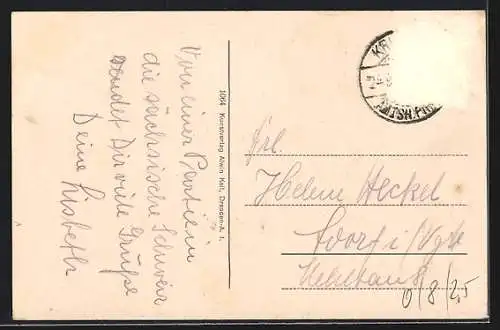 Von einer Partie in
die sächsische Schweiz
sendet Dir viele Grüße
Deine Lisbeth
1064 Kunstverlag Alwin Keil, Dresden-A. 1.
KR
AMTSH. PI
Frl.
Helene Heckel
Adorf i/Vgtl.
0/8/2,5